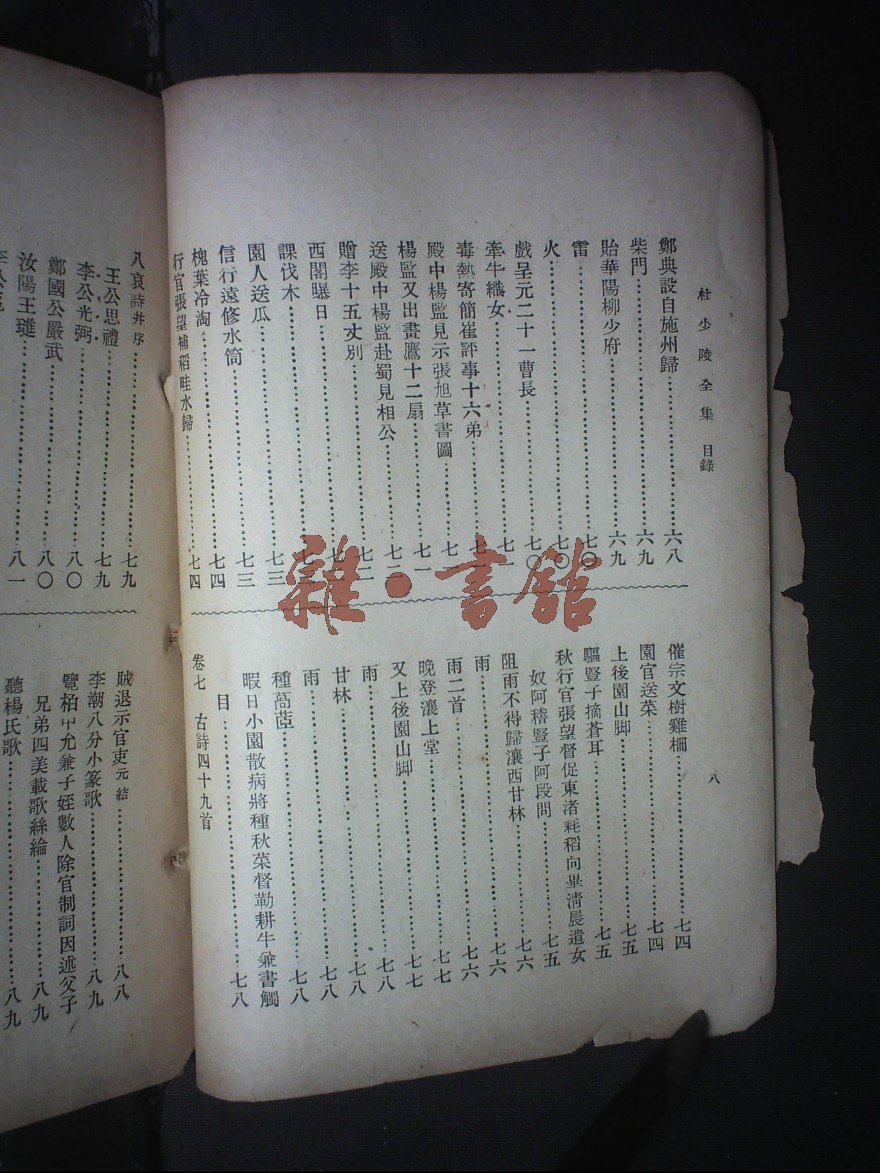 杜少陵全集 目錄
八
鄭典設自施州歸…………六八
柴門…………六九
貽華陽柳少府…………六九
雷…………七〇
火…………七〇
戲呈元二十一曹長…………七〇
牽牛織女…………七一
毒熱寄簡崔評事十六弟…………
殿中楊監見示張旭草書圖…………七一
楊監又出畫鷹十二扇…………七一
送殿中楊監赴蜀見相公…………七二
贈李十五丈別…………七二
西閣曝日…………
課伐木…………七三
園人送瓜…………七三
信行遠修水筒…………七三
槐葉冷淘…………七四
行官張望補稻畦水歸…………七四
催宗文樹雞柵…………七四
園官送菜…………七四
上後園山脚…………七五
驅豎子摘蒼耳…………七五
秋行官張望督促東渚耗稻向畢淸晨遣女
奴阿稽豎子阿段問…………七五
阻雨不得歸瀼西甘林…………七六
雨…………七六
雨二首…………七六
晚登瀼上堂…………七七
又上後園山脚…………七七
雨…………七八
甘林…………七八
雨…………七八
種萵苣…………七八
暇日小園散病將種秋菜督勒耕牛兼書觸
目…………七八
卷七 古詩四十九首
八哀詩并序…………七九
王公思禮…………七九
李公光弼…………八〇
鄭國公嚴武…………八〇
汝陽王璡…………八一
賊退示官吏元結…………八八
李潮八分小篆歌…………八九
覽柏中允兼子姪數人除官制詞因述父子
兄弟四美載歌絲綸…………八九
聽楊氏歌…………八九
雜·書館